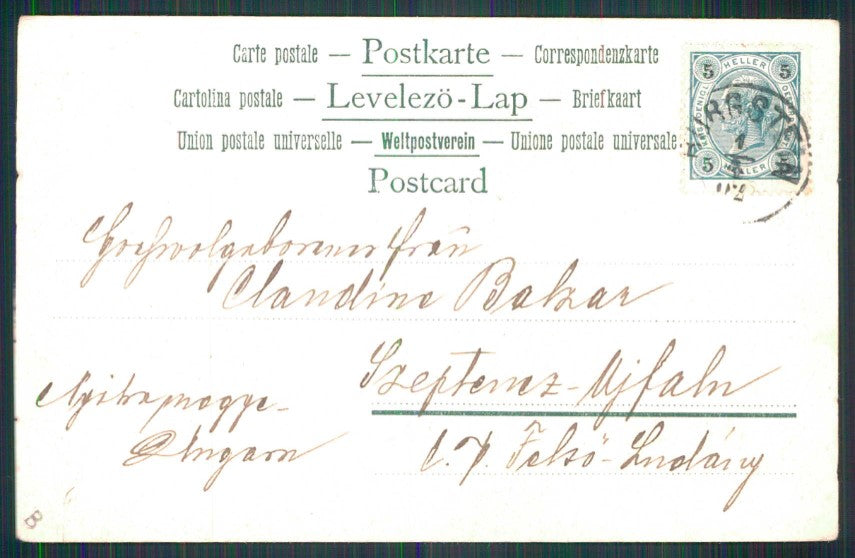 Carte postale — Postkarte — Correspondenzkarte
Cartolina postale — Levelezö-Lap — Briefkaart
Union postale universelle — Weltpostverein — Unione postale universale
Postcard
5 HELLER 5
5 HELLER 5
Hochwolgeborener Frau
Claudine Balzar
Szeptencz-Ujfalu
Nyitra megye-
Ungarn
Felsö-Ludány
B